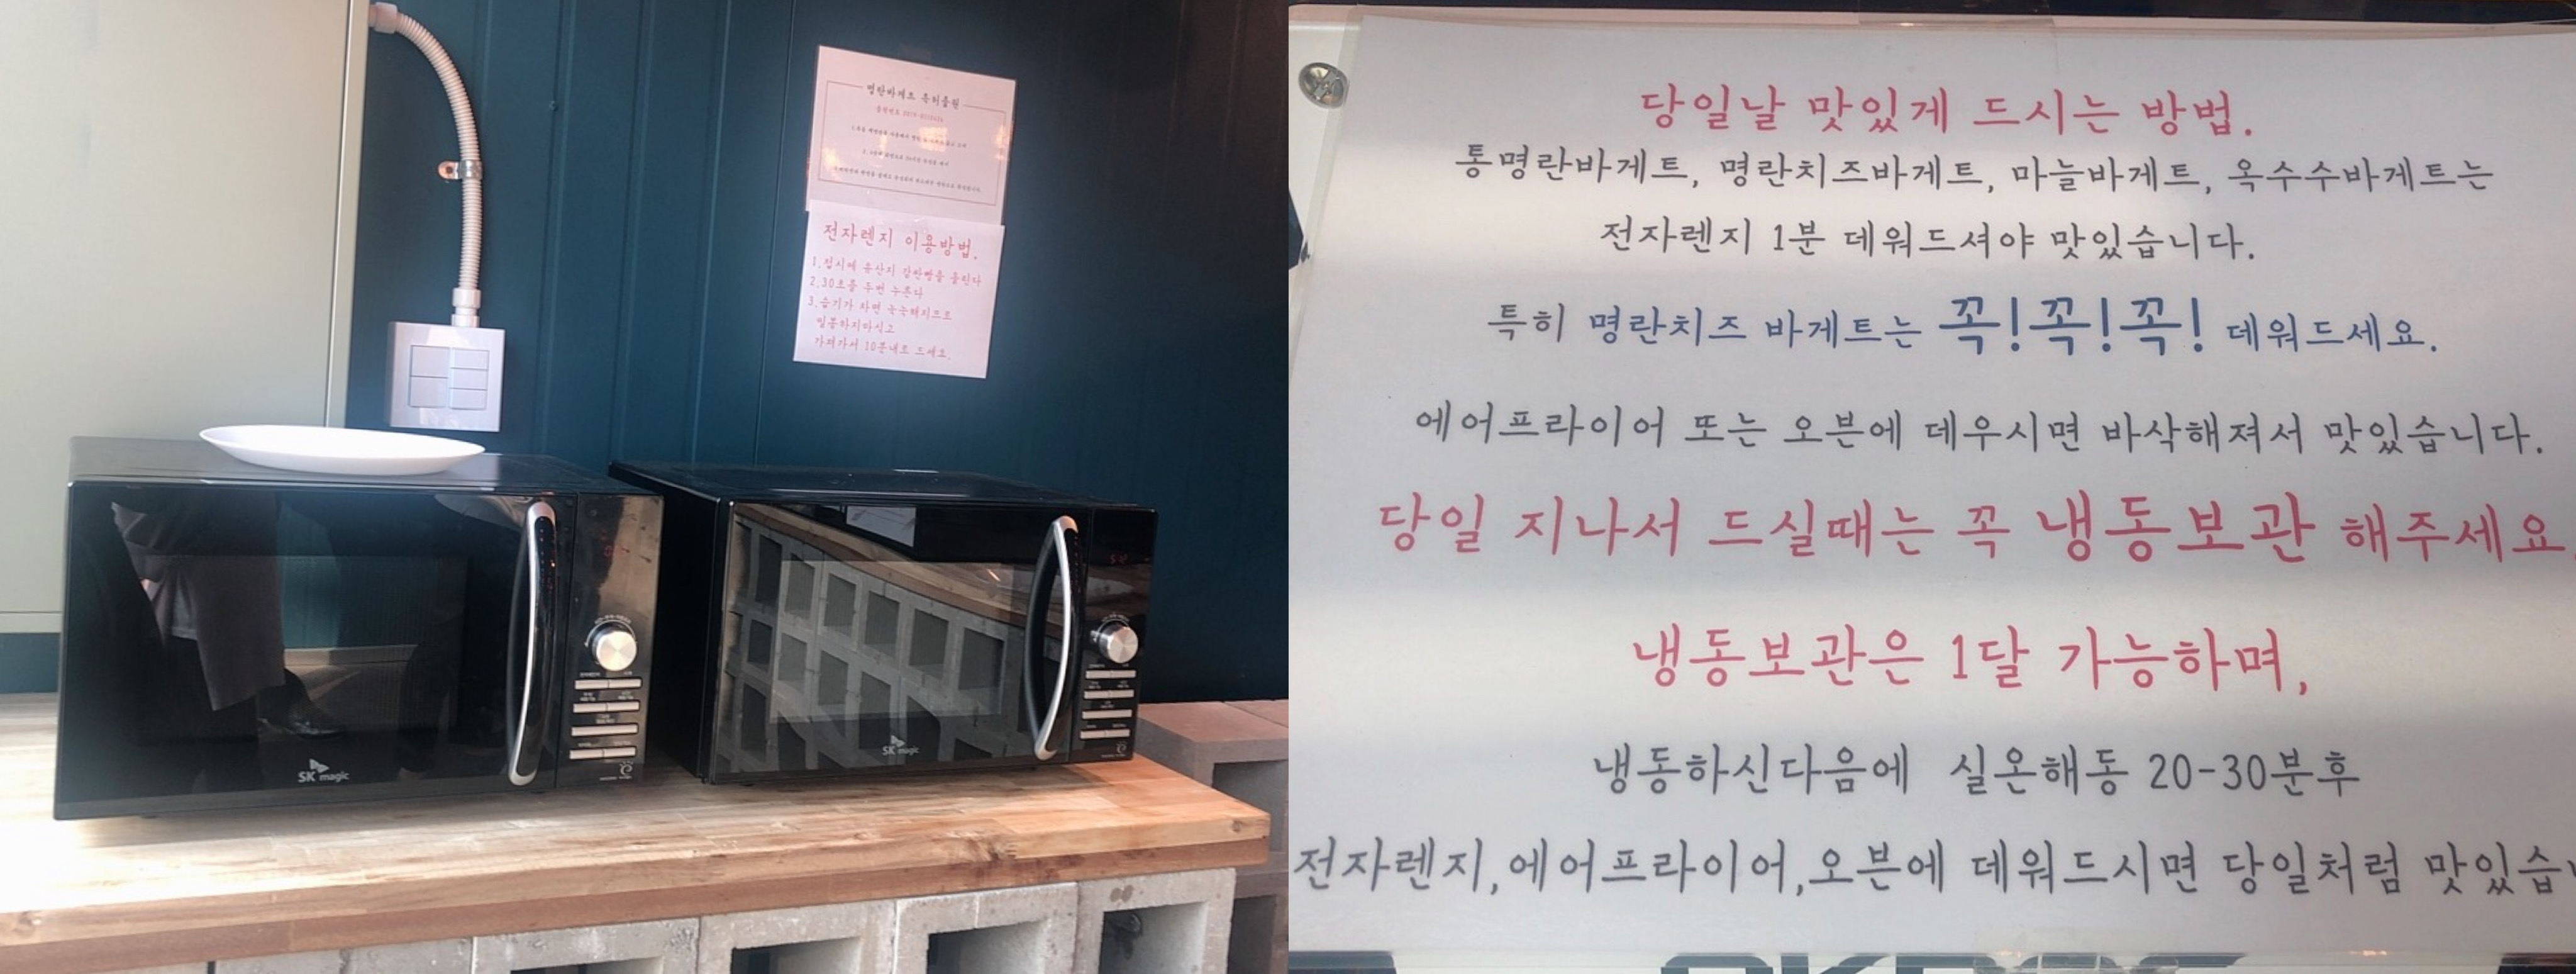 명란바게트 특허출원
전자렌지 이용방법.
1.접시에 유산지 깔판빵을 올린다
2.30초를 두번 누른다
3.습기가 차면 눅눅해지므로
밀봉하지마시고
가져가서 10분내로 드세요.
SK magic
SK magic
당일날 맛있게 드시는 방법.
통명란바게트, 명란치즈바게트, 마늘바게트, 옥수수바게트는
전자렌지 1분 데워드셔야 맛있습니다.
특히 명란치즈 바게트는 꼭!꼭!꼭! 데워드세요.
에어프라이어 또는 오븐에 데우시면 바삭해져서 맛있습니다.
당일 지나서 드실때는 꼭 냉동보관 해주세요.
냉동보관은 1달 가능하며,
냉동하신다음에 실온해동 20-30분후
전자렌지,에어프라이어,오븐에 데워드시면 당일처럼 맛있습